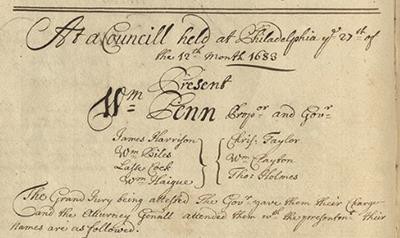 At a Councill held at Philadelphia ye 27th of
the 12th Month 1683
Present
Wm Penn Propor and Govr
James Harrison
Wm Biles
Lasse Cock
Wm Haigue
Chris: Taylor
Wm Clayton
Thos Holmes
The Grand Jury being attested The Govr gave them their Charge
and the Atturney Genall attended them wth the presentmt their
names are as followed.